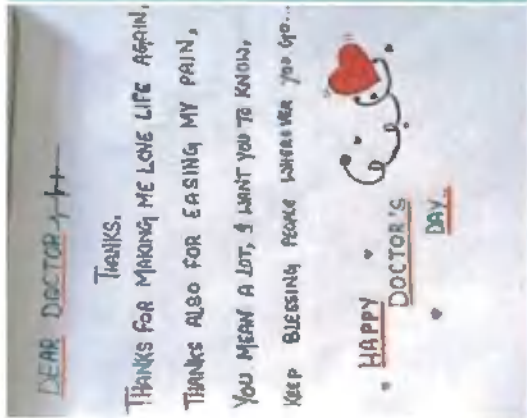 DEAR DOCTOR
THANKS.
THANKS FOR MAKING ME LOVE LIFE AGAIN,
THANKS ALSO FOR EASING MY PAIN,
YOU MEAN A LOT, I WANT YOU TO KNOW,
KEEP BLESSING PEOPLE WHEREVER YOU GO...
HAPPY
DOCTOR'S
DAY..